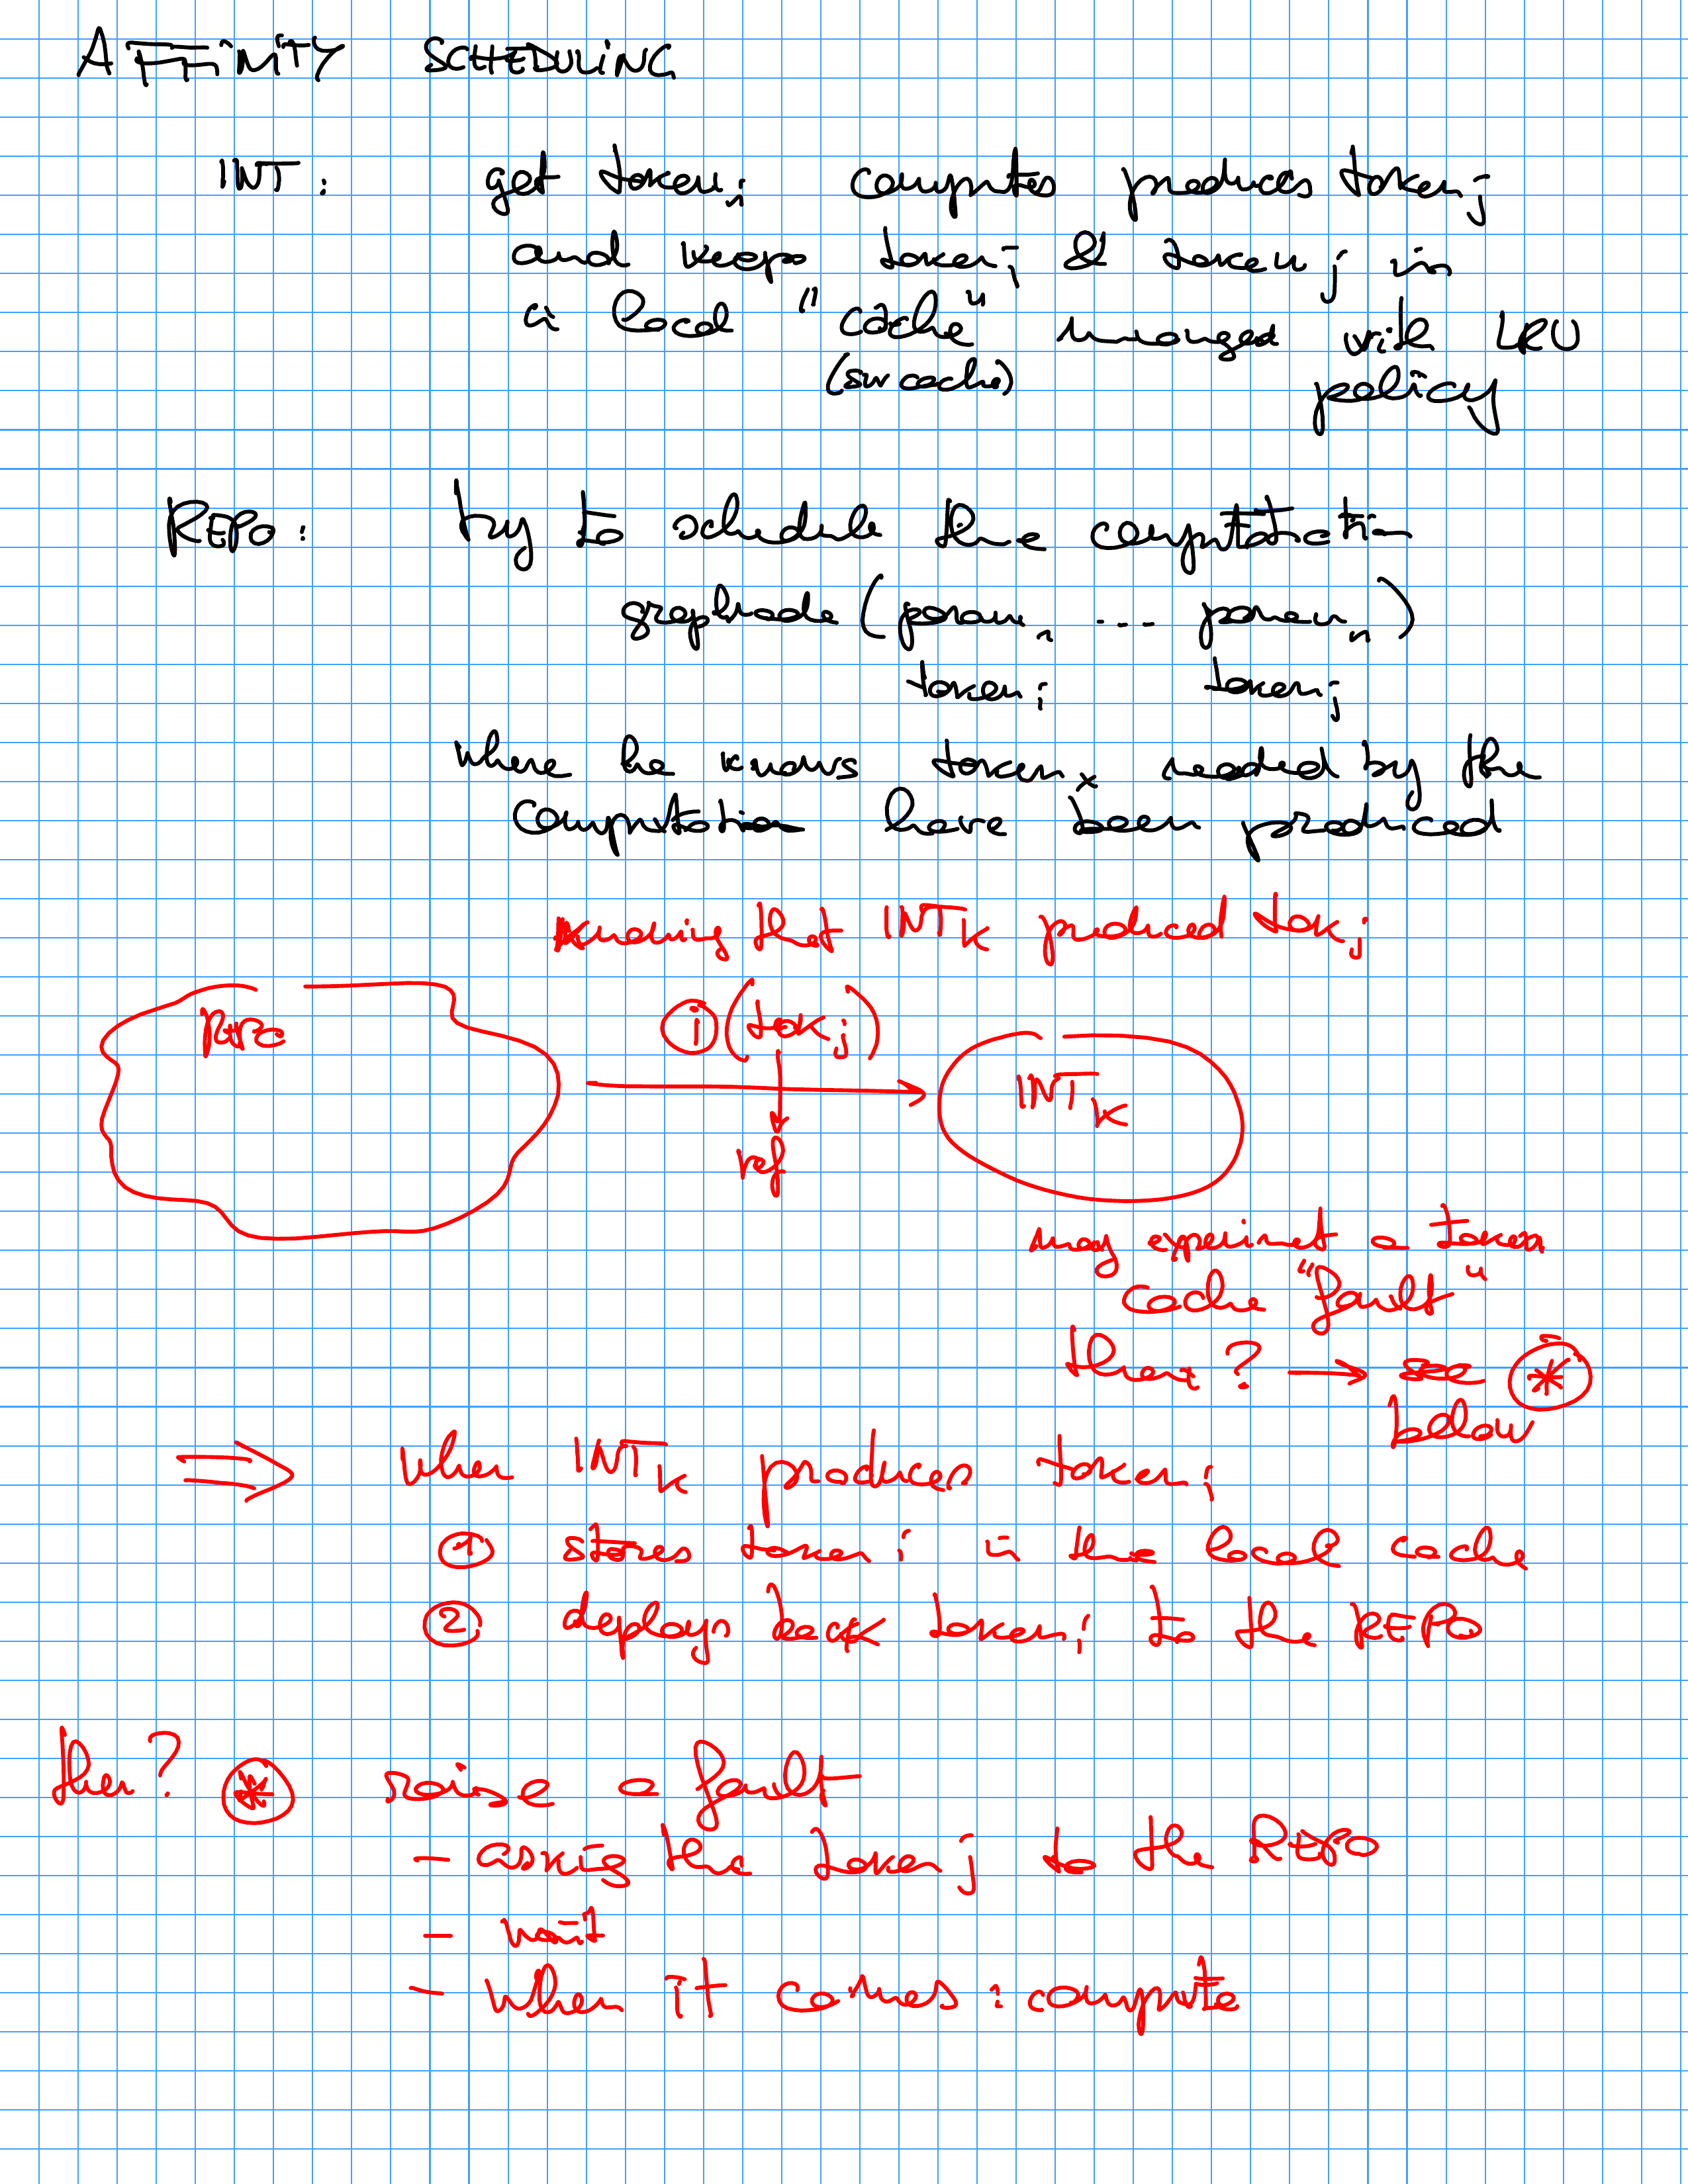 AFFINITY SCHEDULING
INT: get token i computes produces token j
and keeps token i & token j in
a local "cache" managed with LRU
(sw cache) policy
REPO: try to schedule the computation
graphnode (param 1 ... param n)
token i token j
where he knows token x needed by the
computation have been produced
knowing that INT K produced tok j
REPO i (tok j)
INT K
ref
may experiment a token
cache "fault"
then? → see *
below
⇒ when INT K produces token i
1 stores token i in the local cache
2 deploys back token i to the REPO
then? * raise a fault
- asking the token j to the REPO
- wait
- when it comes: compute